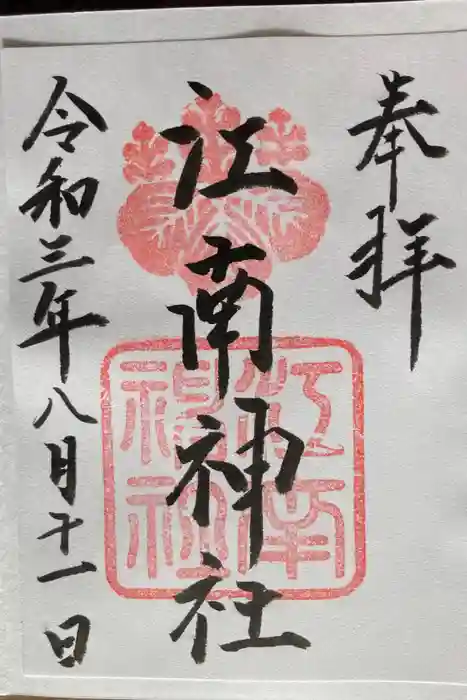 奉拝
江南神社
江南神社
令和三年八月十一日